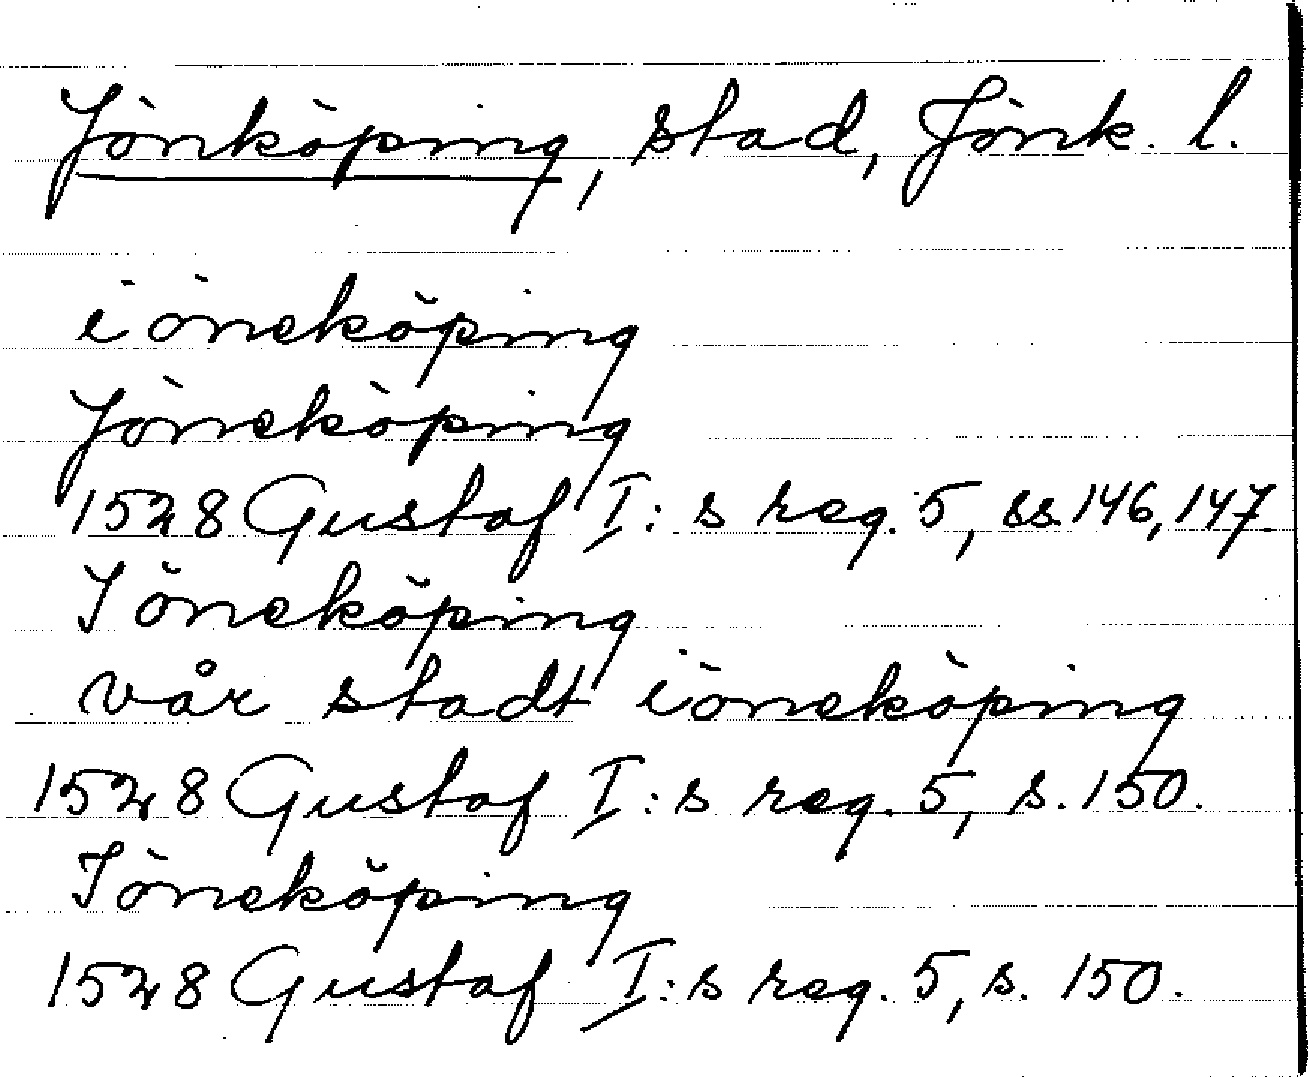 Jönköping, stad, Jönk. l.
iöneköping
Jöneköping
1528 Gustaf I:s reg. 5, ss. 146, 147
Iöneköping
vår stadt iöneköping
1528 Gustaf I:s reg. 5, s. 150.
Iöneköping
1528 Gustaf I:s reg. 5, s. 150.